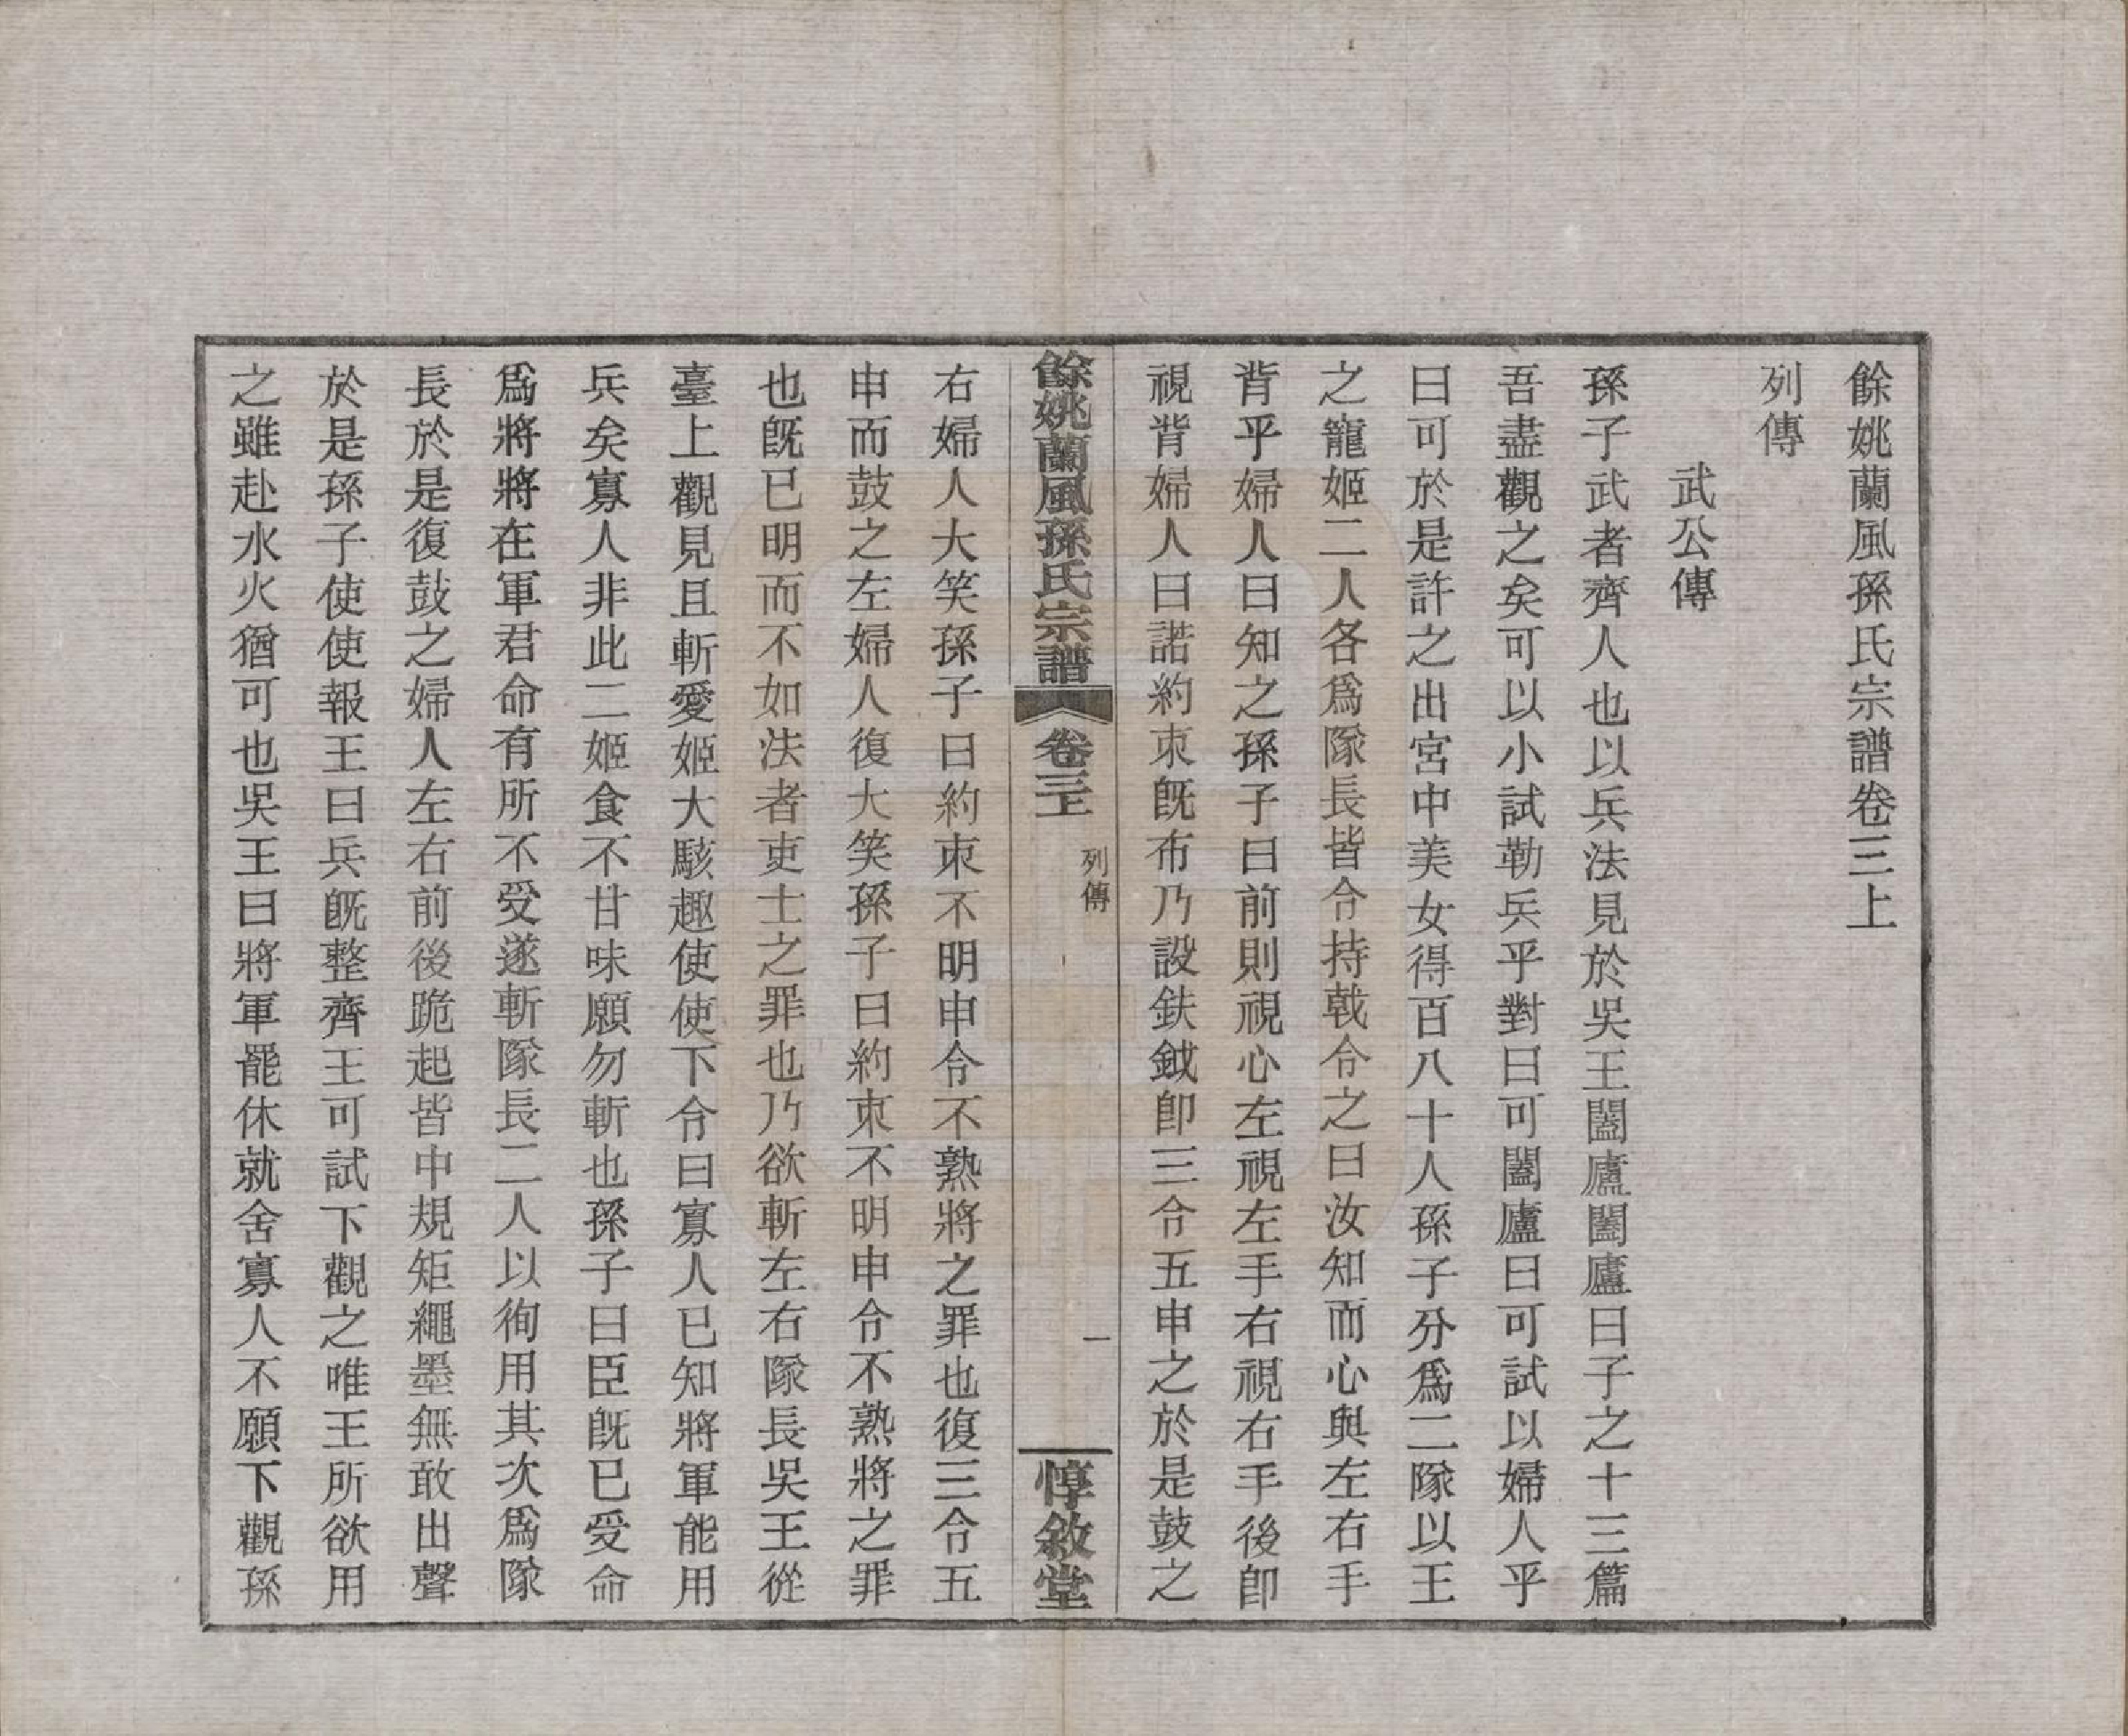 餘姚蘭風孫氏宗譜卷三上
列傳
武公傳
孫子武者齊人也以兵法見於吳王闔廬闔廬曰子之十三篇
吾盡觀之矣可以小試勒兵乎對曰可闔廬曰可試以婦人乎
曰可於是許之出宮中美女得百八十人孫子分爲二隊以王
之寵姬二人各爲隊長皆令持戟令之曰汝知而心與左右手
背乎婦人曰知之孫子曰前則視心左視左手右視右手後卽
視背婦人曰諾約束旣布乃設鈇鉞卽三令五申之於是鼓之
餘姚蘭風孫氏宗譜
卷三上
列傳
一
惇敘堂
右婦人大笑孫子曰約束不明申令不熟將之罪也復三令五
申而鼓之左婦人復大笑孫子曰約束不明申令不熟將之罪
也旣已明而不如法者吏士之罪也乃欲斬左右隊長吳王從
臺上觀見且斬愛姬大駭趣使使下令曰寡人已知將軍能用
兵矣寡人非此二姬食不甘味願勿斬也孫子曰臣旣已受命
爲將將在軍君命有所不受遂斬隊長二人以徇用其次爲隊
長於是復鼓之婦人左右前後跪起皆中規矩繩墨無敢出聲
於是孫子使使報王曰兵旣整齊王可試下觀之唯王所欲用
之雖赴水火猶可也吳王曰將軍罷休就舍寡人不願下觀孫